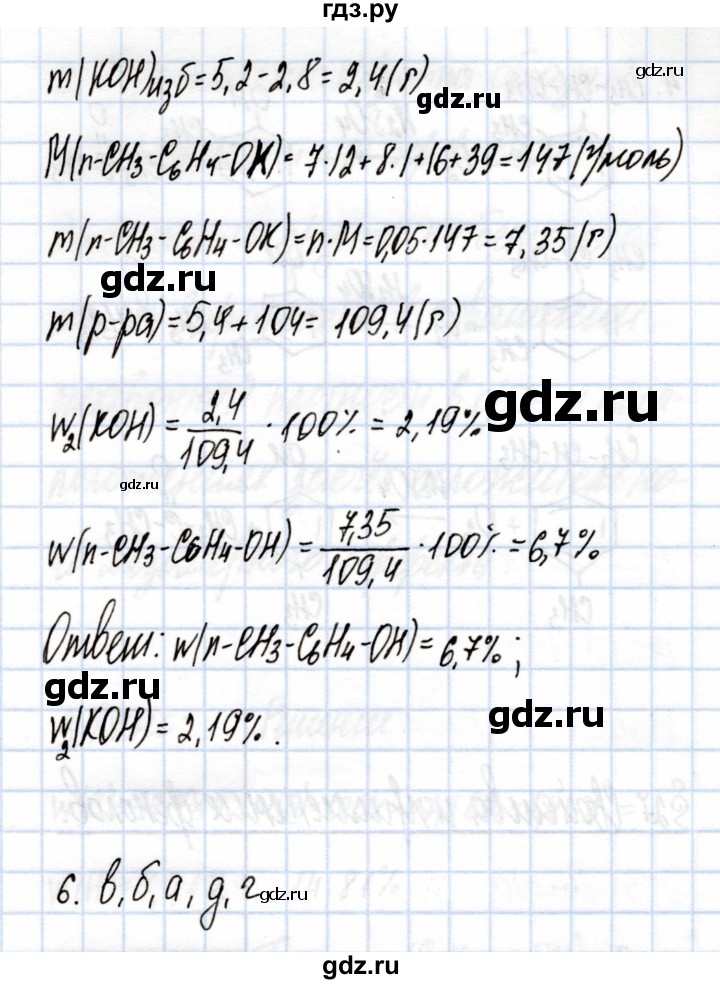 гдз.ру
m(KOH)изб = 5,2 - 2,8 = 2,4 (г)
gdz.ru
M(п-CH3-C6H4-OK) = 7·12 + 8·1 + 16 + 39 = 147 (г/моль)
m(п-CH3-C6H4-OK) = n·M = 0,05·147 = 7,35 (г)
gdz.ru
m(р-ра) = 5,4 + 104 = 109,4 (г)
gdz.ru
w2(KOH) = 2,4/109,4 · 100% = 2,19%
gdz.ru
w(п-CH3-C6H4-OH) = 7,35/109,4 · 100% = 6,7%
Ответ: w(п-CH3-C6H4-OH) = 6,7%;
gdz.ru
w2(KOH) = 2,19%.
6. в, б, а, д, г
gdz.ru
gdz.ru